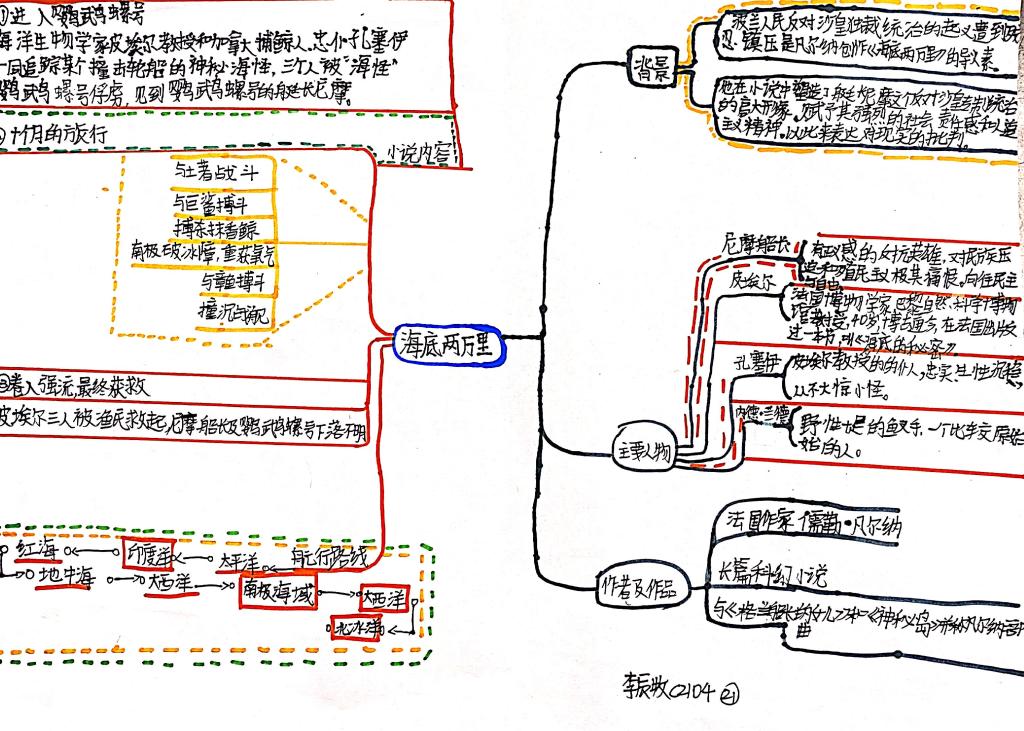 ①进入鹦鹉螺号
海洋生物学家皮埃尔教授和加拿大捕鲸人、忠仆孔塞伊
一同追踪某个撞击轮船的神秘海怪,三个人被“海怪”
鹦鹉螺号俘虏,见到鹦鹉螺号的舰长尼摩。
个月的旅行
小说内容
与土著战斗
与巨鲨搏斗
搏杀抹香鲸
南极破冰障,重获氧气
与章鱼搏斗
撞沉战舰
海底两万里
③卷入强流,最终获救
皮埃尔三人被渔民救起,尼摩船长及鹦鹉螺号下落不明
红海
印度洋
太平洋
航行路线
地中海
大西洋
南极海域
大西洋
北冰洋
背景
波兰人民反对沙皇独裁统治的起义遭到残
忍镇压是凡尔纳创作《海底两万里》的导火索。
他在小说中塑造了舰长尼摩这个反对沙皇专制统治
的高大形象,赋予其强烈的社会责任感和人道
主义精神,以此来表达对现实的批判。
主要人物
尼摩船长
有正义感的反抗英雄,对民族压
迫和殖民主义极其痛恨,向往民主
与自由
皮埃尔
法国博物学家,巴黎自然科学博物
馆教授,40岁,博古通今,在法国出版
过一本书,叫《海底的秘密》。
孔塞伊
皮埃尔教授的仆人,忠实,生性沉稳,
从不大惊小怪。
内德·兰德
野性十足的鱼叉手、一个比较原始
的人。
作者及作品
法国作家 儒勒·凡尔纳
长篇科幻小说
与《格兰船长的儿女》和《神秘岛》并称凡尔纳三部
曲
2104 ㉑